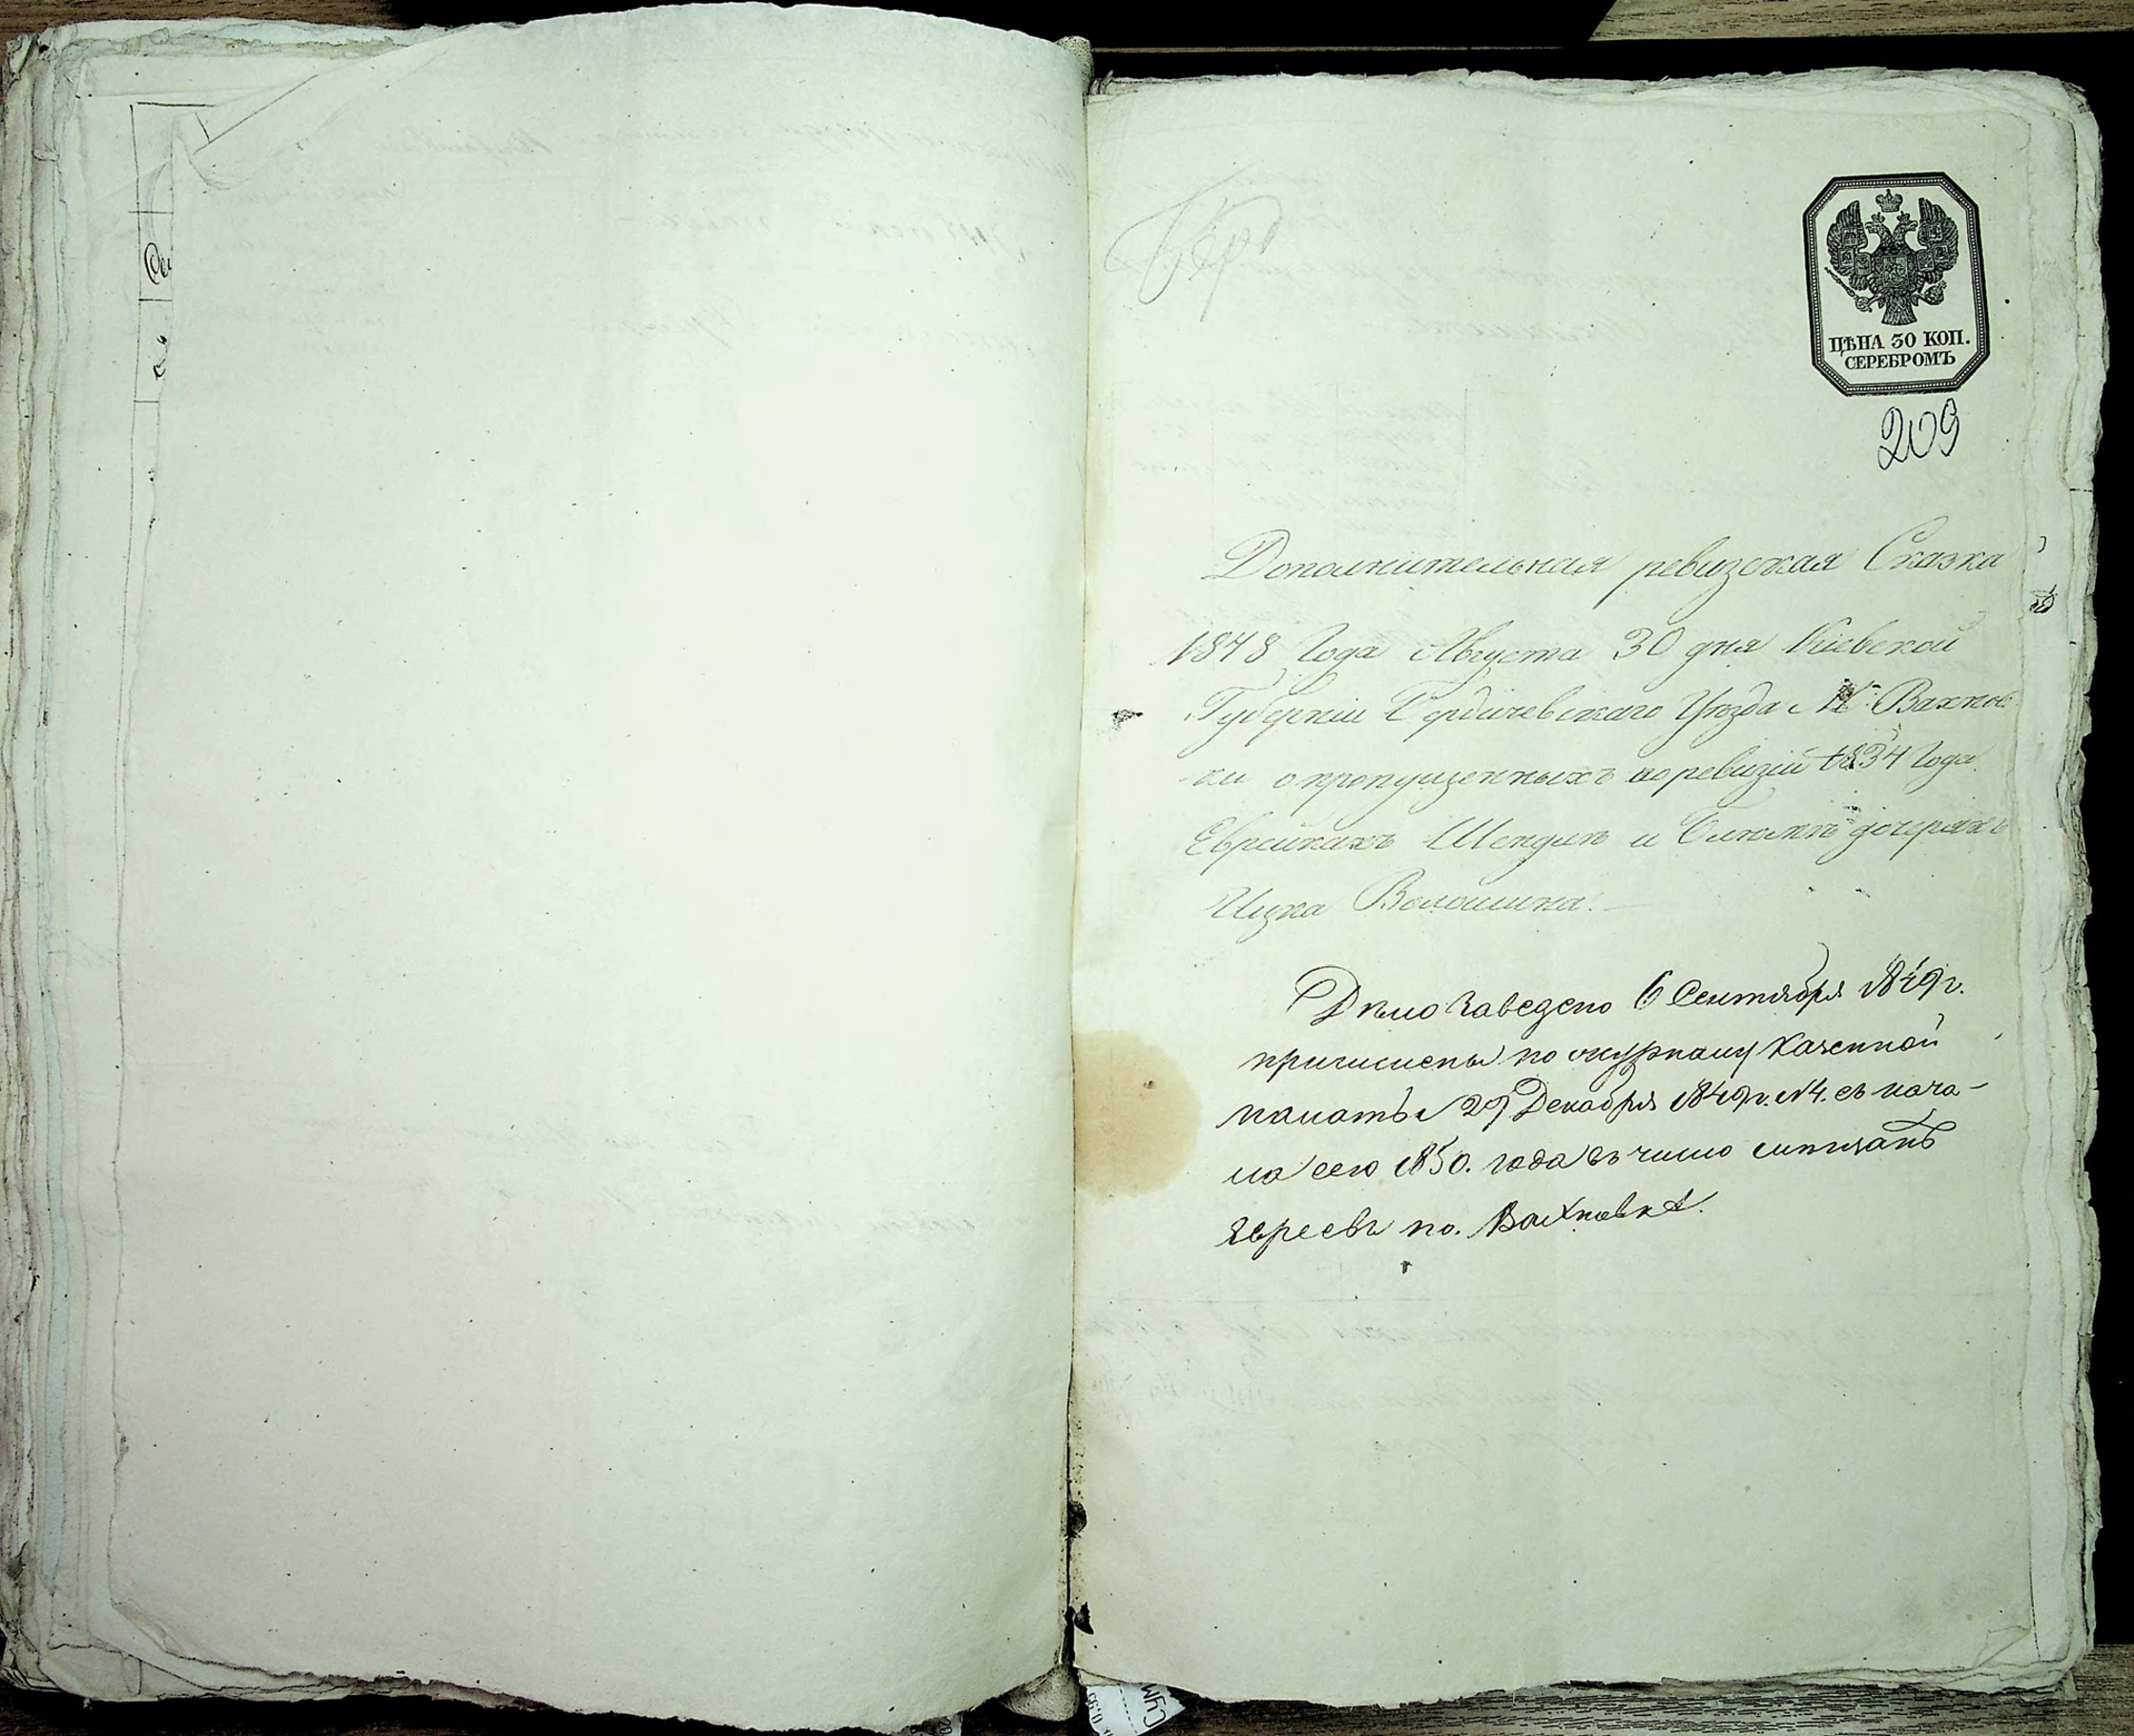 Бер
ЦѢНА 30 КОП.
СЕРЕБРОМЪ
209
Дополнительная ревизская Сказка
1848 Года Августа 30 дня Кіевской
Губерніи Бердичевскаго Уѣзда М. Вахнов
ки о пропущенныхъ по ревизіи 1834 Года
Еврейкахъ Шендлѣ и Блюмѣ дочеряхъ
Ицка Волошина.
Дѣло заведено 6 Сентября 1849 г.
причислены по журналу Казенной
палаты 29 Декабря 1849 г. № 4. съ нача-
ла сего 1850. года въ число мѣщанъ
Евреевъ по. Вахновкѣ.